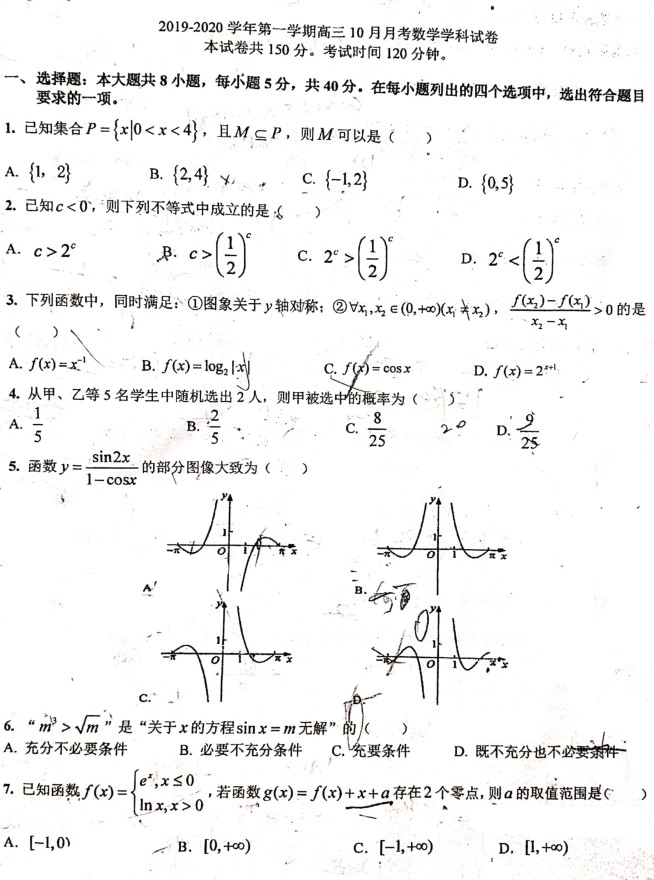 2019-2020 学年第一学期高三 10 月月考数学学科试卷
本试卷共 150 分。考试时间 120 分钟。
一、选择题：本大题共 8 小题，每小题 5 分，共 40 分。在每小题列出的四个选项中，选出符合题目
要求的一项。
1. 已知集合 P = {x|0 < x < 4}，且 M ⊆ P，则 M 可以是（ ）
A. {1，2} B. {2,4} C. {−1,2} D. {0,5}
2. 已知 c < 0，则下列不等式中成立的是（ ）
A. c > 2^c B. c > (1/2)^c C. 2^c > (1/2)^c D. 2^c < (1/2)^c
3. 下列函数中，同时满足：①图象关于 y 轴对称；②∀x₁,x₂ ∈ (0,+∞)(x₁ ≠ x₂)，(f(x₂) − f(x₁))/(x₂ − x₁) > 0 的是
（ ）
A. f(x) = x^{-1} B. f(x) = log₂|x| C. f(x) = cos x D. f(x) = 2^{x+1}
4. 从甲、乙等 5 名学生中随机选出 2 人，则甲被选中的概率为（ ）
A. 1/5 B. 2/5 C. 8/25 20 D. 9/25
5. 函数 y = sin2x/(1−cosx) 的部分图像大致为（ ）
y 1 −π O 1 π x
y 1 −π O 1 π x
A. B.
y 1 −π O 1 π x
y 1 −π O 1 π x
C. D.
6. “m³ > √m”是“关于 x 的方程 sin x = m 无解”的（ ）
A. 充分不必要条件 B. 必要不充分条件 C. 充要条件 D. 既不充分也不必要条件
7. 已知函数 f(x) = {e^x, x ≤ 0; ln x, x > 0，若函数 g(x) = f(x) + x + a 存在 2 个零点，则 a 的取值范围是（ ）
A. [−1,0) B. [0,+∞) C. [−1,+∞) D. [1,+∞)